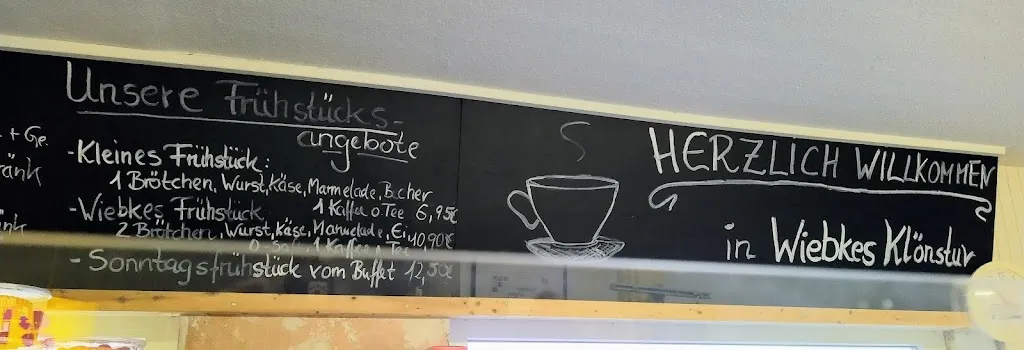 Unsere Frühstücks-
angebote
+ Ge.
ränk
-Kleines Frühstück:
1 Brötchen, Wurst, Käse, Marmelade, Becher
1 Kaffee o Tee 6,95€
-Wiebkes Frühstück
2 Brötchen, Wurst, Käse, Marmelade, Ei
1 Kaffee Tee 10,90€
- Sonntagsfrühstück vom Buffet 12,50€
HERZLICH WILLKOMMEN
in Wiebkes Klönstuv